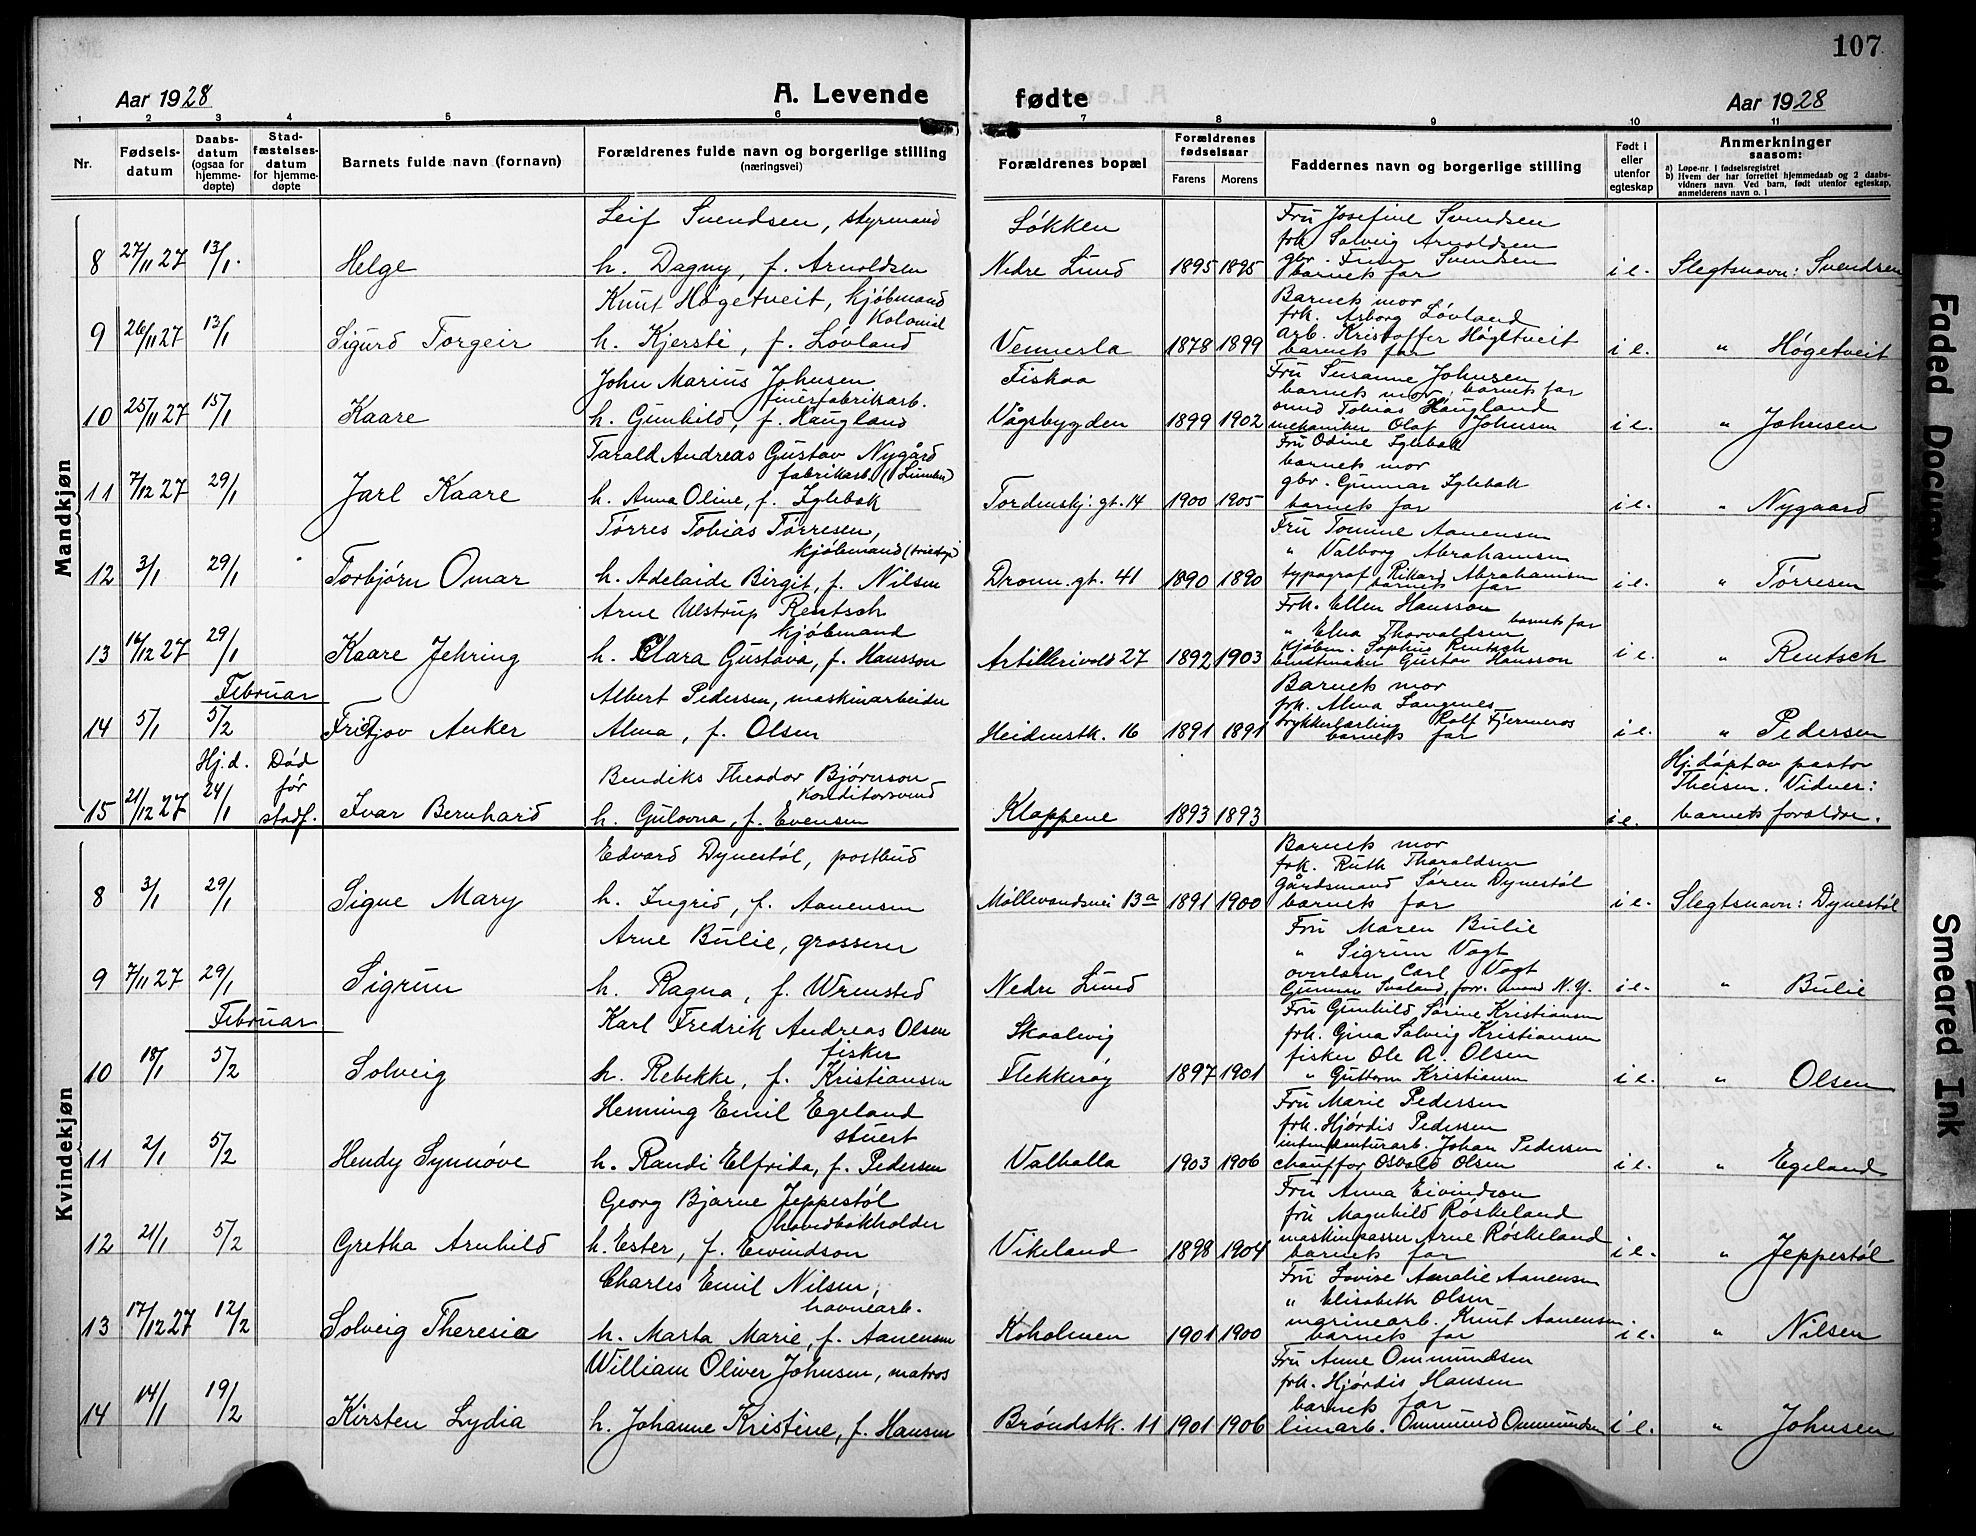 107
Aar 1928
A. Levende
fødte
Aar 1928
1 2 3 4 5 6 7 8 9 10 11
Nr.
Fødsels-datum
Daabs-datum (ogsaa for hjemme-døpte)
Stad-fæstelses-datum for hjemme-døpte
Barnets fulde navn (fornavn)
Forældrenes fulde navn og borgerlige stilling (næringsvei)
Forældrenes bopæl
Forældrenes fødselsaar
Farens Morens
Faddernes navn og borgerlige stilling
Født i eller utenfor egteskap
Anmerkninger saasom:
a) Løpe-nr. i fødselsregistret
b) Hvem der har forrettet hjemmedaab og 2 daabs-vidners navn. Ved barn, født utenfor egteskap, anmelderens navn o. l
Mandkjøn
Leif Svendsen, styrmand Løkken Fru Josefine Svendsen
frk. Solveig Arnoldsen
gbr. Finn Svendsen
8 27/11 27 13/1. Helge h. Dagny, f. Arnoldsen Nedre Lund 1895 1895 barnets far i e. Slegtsnavn: Svendsen
Knut Høgetveit, kjøbmand Barnets mor
Kolonial frk. Asborg Løvland
arb. Kristoffer Høgetveit
9 26/11 27 13/1 Sigurd Torgeir h. Kjersti, f. Løvland Vennesla 1878 1899 barnets far i e. " Høgetveit
John Marius Johnsen Fiskaa Fru Susanne Johnsen
finerfabrikarb. barnets mor, barnets far
smed Tobias Haugland
10 25/11 27 15/1 Kaare h. Gunhild, f. Haugland Vågsbygden 1899 1902 mekaniker Olaf Johnsen i e. " Johnsen
Tarald Andreas Gustav Nygård Fru Odine Iglebæk
fabrikarb. barnets mor
gbr. Gunnar Iglebæk
11 7/12 27 29/1 Jarl Kaare h. Anna Oline, f. Iglebæk Tordenskj: gt. 14 1900 1905 barnets far i e. " Nygaard
Tørres Tobias Tørresen, Fru Tomine Aanensen
kjøbmand " Valborg Abrahamsen
typograf Rikard Abrahamsen
12 3/1 29/1 Torbjørn Omar h. Adelaide Birgit, f. Nilsen Dronn. gt. 41 1890 1890 barnets far i e. " Tørresen
Arne Ulstrup Rentsch Frk. Ellen Hansson
kjøbmand " Elna Thorvaldsen barnets far
kjøbm. Sophus Rentsch
13 16/12 27 29/1 Kaare Jehring h. Clara Gustava, f. Hansson Artillerivold 27 1892 1903 buntmaker Gustav Hansson i e. " Rentsch
Februar
Albert Pedersen, maskinarbeider Barnets mor
frk. Alma Langenes
trykkerlærling Rolf Fjermeros
14 5/1 5/2 Fridtjov Anker Alma, f. Olsen Heidenstk. 16 1891 1891 barnets far i e. " Pedersen
Hj. d. Død før Bendiks Theodor Bjørnson Hj. døpt av pastor
Konditorsvend Theisen. Vidner:
15 21/12 27 24/1 stadf. Ivar Bernhard h. Gulovna, f. Evensen Kloppene 1893 1893 i e. barnets forældre.
Kvindekjøn
Edvard Dynestøl, postbud Barnets mor
frk. Ruth Tharaldsen
gårdsmand Søren Dynestøl
8 3/1 29/1 Signe Mary h. Ingrid, f. Aanensen Møllevandsvei 13a 1891 1900 barnets far i e. Slegtsnavn: Dynestøl
Arne Bulie, grosserer Fru Maren Bulie
" Sigrun Vogt
overlærer Carl Vogt
9 7/11 27 29/1 Sigrun h. Ragna, f. Wrensted Nedre Lund Gunnar N. Y. i e. " Bulie
Februar
Karl Fredrik Andreas Olsen Skaalevig Fru Gunhild Sørine Kristiansen
fisker frk. Gina Solveig Kristiansen
fisker Ole A. Olsen
10 18/1 5/2 Solveig h. Rebekke, f. Kristiansen Flekkerøy 1897 1901 " Guttorm Kristiansen i e. " Olsen
Henning Emil Egeland Fru Marie Pedersen
stuert frk. Hjørdis Pedersen
intendanturarb. Johan Pedersen
11 2/1 5/2 Hendy Synnøve h. Randi Elfrida, f. Pedersen Valhalla 1903 1906 chauffør Osvald Olsen i e. " Egeland
Georg Bjarne Jeppestøl Fru Anna Eivindson
hovedbokholder fru Magnhild Røskeland
maskinpasser Arne Røskeland
12 21/1 5/2 Gretha Arnhild h. Ester, f. Eivindson Vikeland 1898 1904 barnets far i e. " Jeppestøl
Charles Emil Nilsen, Fru Lovise Amalie Aanensen
havnearb. " Elisabeth Olsen
marinearb. Knut Aanensen.
13 17/12 27 12/2 Solveig Theresia h. Marta Marie, f. Aanensen Koholmen 1901 1900 barnets far i e. " Nilsen
William Oliver Johnsen, matros Fru Anne Ommundsen
frk. Hjørdis Hansen
barnets far
14 14/1 19/2 Kirsten Lydia h. Johanne Kristine, f. Hansen Brøndstk. 11 1901 1906 limarb. Ommund Ommundsen i e. " Johnsen
Faded Document
Smeared Ink